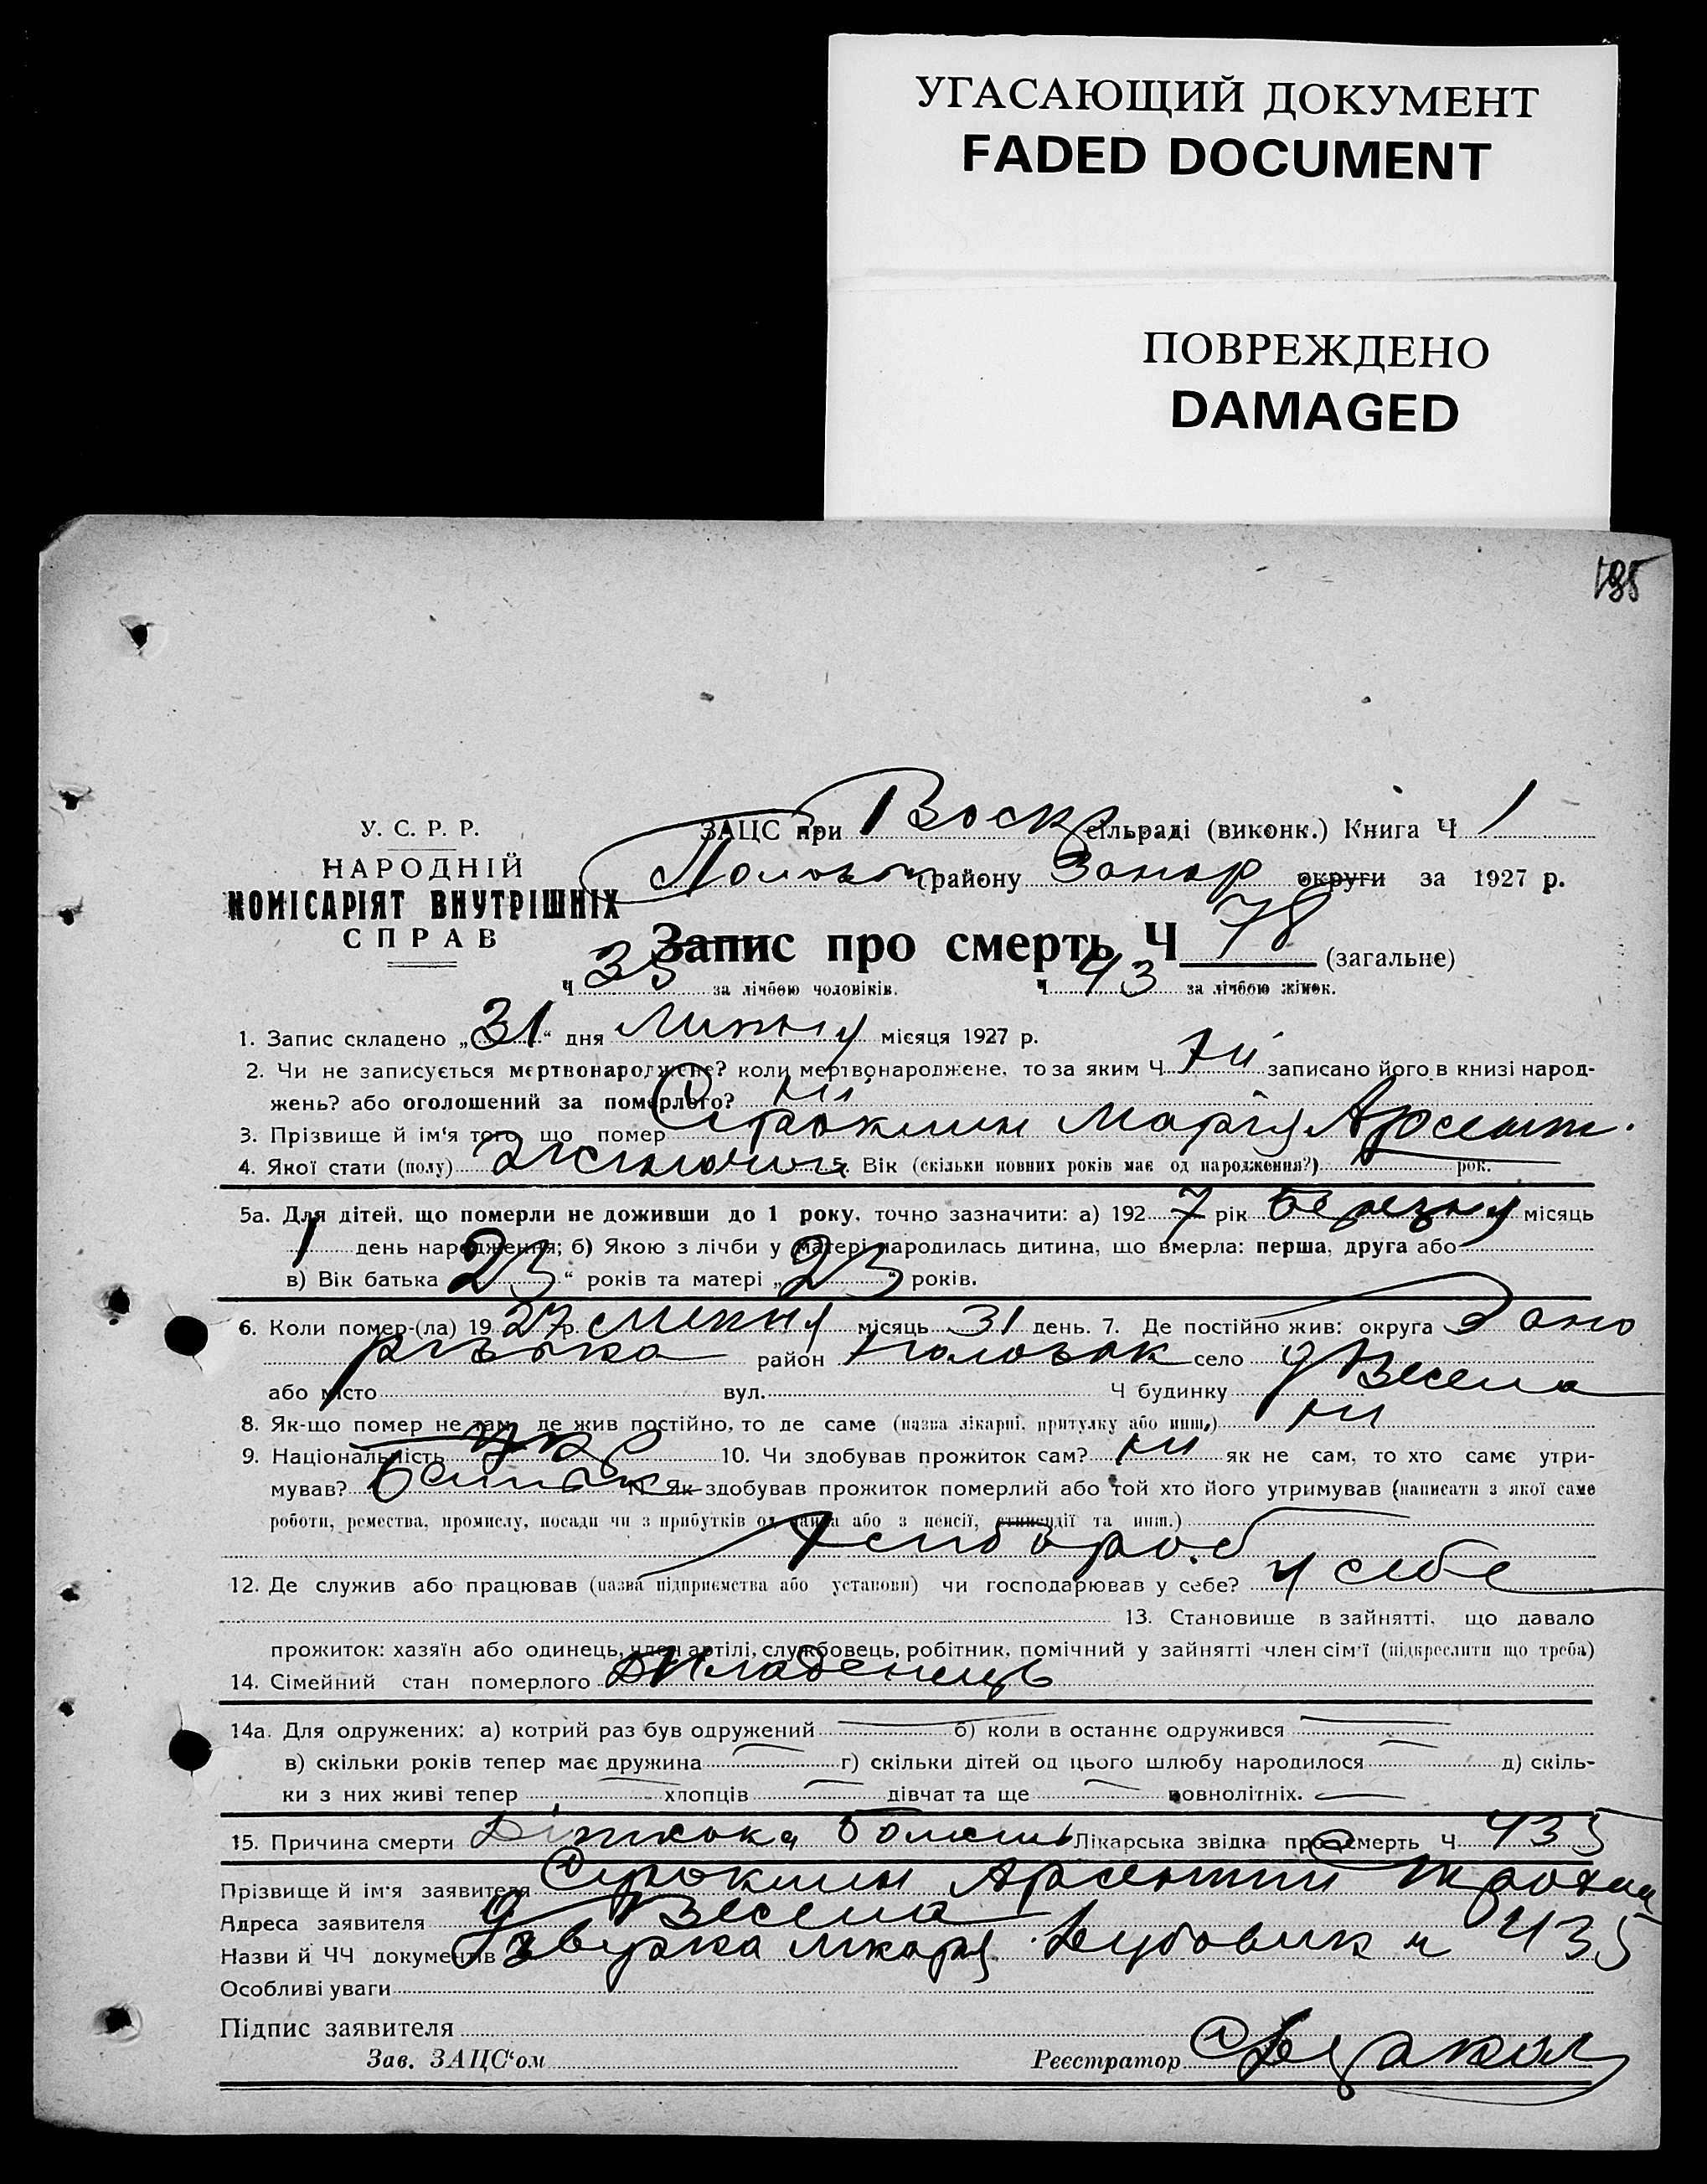 УГАСАЮЩИЙ ДОКУМЕНТ
FADED DOCUMENT
ПОВРЕЖДЕНО
DAMAGED
195
У. С. Р. Р.
НАРОДНІЙ
КОМІСАРІЯТ ВНУТРІШНІХ
СПРАВ
ЗАЦС при Воскр сільраді (виконк.) Книга Ч 1
району Запор округи за 1927 р.
Запис про смерть Ч 78 (загальне)
Ч 35 за лічбою чоловіків. Ч 43 за лічбою жінок.
1. Запис складено „31“ дня Липня місяця 1927 р.
2. Чи не записується мертвонароджене? коли мертвонароджене, то за яким Ч ні записано його в книзі народ-
жень? або оголошений за померлого? ні
3. Прізвище й ім'я того, що помер Марія Арсент.
4. Якої стати (полу) 5. Вік (скільки повних років має од народження?) рок.
5а. Для дітей, що померли не доживши до 1 року, точно зазначити: а) 1927 рік березня місяць
1 день народження; б) Якою з лічби у матері народилась дитина, що вмерла: перша, друга або
в) Вік батька 23 “ років та матері „23“ років.
6. Коли помер-(ла) 1927 р. липня місяць 31 день. 7. Де постійно жив: округа Запо
ріжька район Пологівськ село д Весела
або місто вул. Ч будинку
8. Як-що помер не там, де жив постійно, то де саме (назва лікарні, притулку або инш.) ни
9. Національність укр 10. Чи здобував прожиток сам? ни як не сам, то хто саме утри-
мував? Батько 11. Як здобував прожиток померлий або той хто його утримував (написати з якої саме
роботи, ремества, промислу, посади чи з прибутків од майна або з пенсії, стипендії та инш.)
Хлібороб
12. Де служив або працював (назва підприємства або установи) чи господарював у себе? у себе
13. Становище в зайнятті, що давало
прожиток: хазяїн або одинець, член артілі, службовець, робітник, помічний у зайнятті член сім'ї (підкреслити що треба)
14. Сімейний стан померлого Младенець
14а. Для одружених: а) котрий раз був одружений б) коли в останнє одружився
в) скільки років тепер має дружина г) скільки дітей од цього шлюбу народилося д) скіль-
ки з них живі тепер хлопців дівчат та ще повнолітніх.
15. Причина смерти Дітська болість Лікарська звідка про смерть Ч 435
Прізвище й ім'я заявителя Арсентий
Адреса заявителя д Весела
Назви й ЧЧ документів лікаря Дубовик ч 435
Особливі уваги
Підпис заявителя
Зав. ЗАЦС'ом Реєстратор